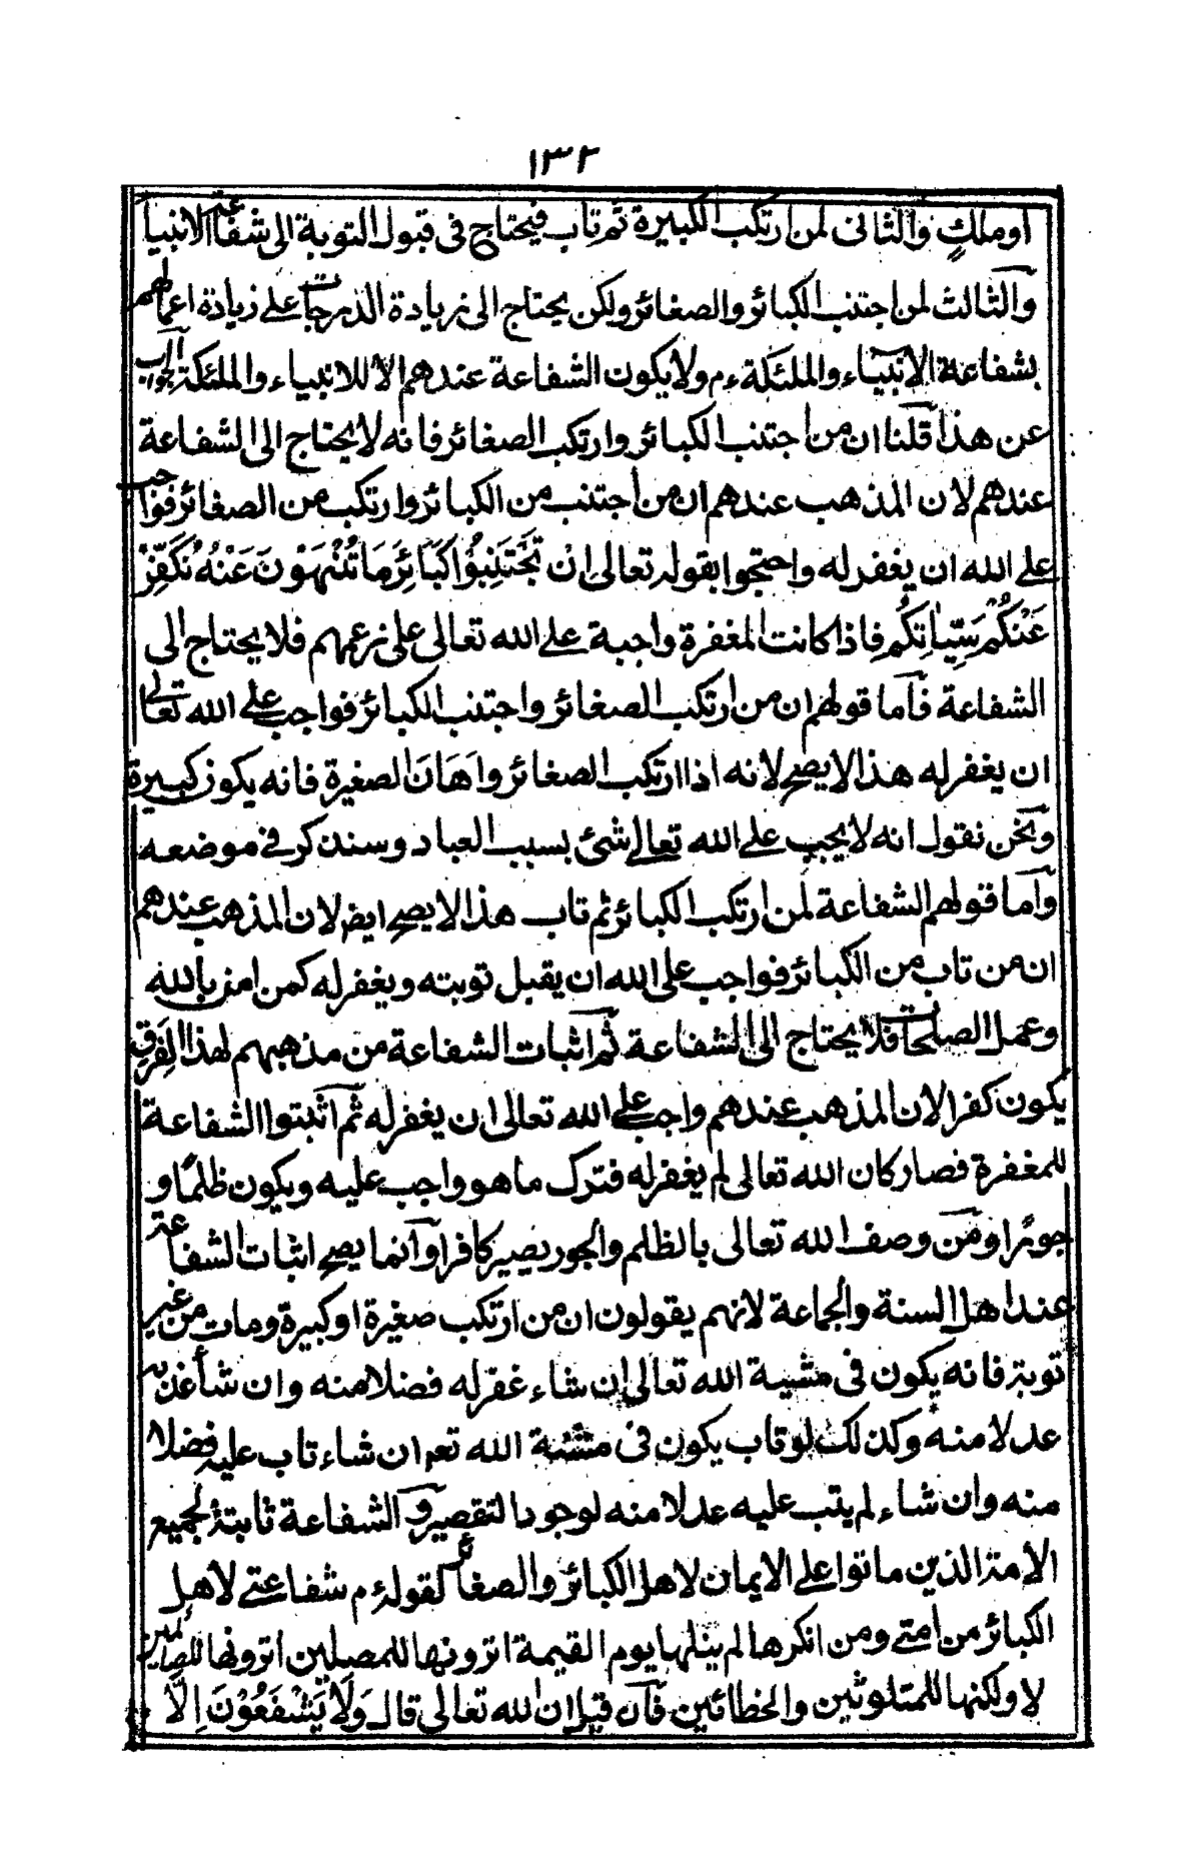 ١٣٢
او ملكٍ والثانى لمن ارتكب الكبيرة ثم تاب فيحتاج فى قبول التوبة الى شفاعة الانبيا
والثالث لمن اجتنب الكبائر والصغائر ولكن يحتاج الى زيادة الدرجات على زيادة اعمالهم
بشفاعة الانبياء والملئكة ءم ولا يكون الشفاعة عندهم الا للانبياء والملئكة الجواب
عن هذا قلنا ان من اجتنب الكبائر وارتكب الصغائر فانه لا يحتاج الى الشفاعة
عندهم لان المذهب عندهم ان من اجتنب من الكبائر وارتكب من الصغائر فواجب
على الله ان يغفر له واحتجوا بقوله تعالى ان تَجْتَنِبُوْا كَبَائِرَ مَا تُنْهَوْنَ عَنْهُ نُكَفِّرْ
عَنْكُمْ سَيِّاٰتِكُمْ فاذا كانت المغفرة واجبة على الله تعالى على زعمهم فلا يحتاج الى
الشفاعة فاما قولهم ان من ارتكب الصغائر واجتنب الكبائر فواجب على الله تعالى
ان يغفر له هذا لا يصح لانه اذا ارتكب الصغائر واَهَانَ الصغيرة فانه يكون كبيرة
ونحن نقول انه لا يجب على الله تعالى شئ بسبب العباد وسنذكر فى موضعه
واما قولهم الشفاعة لمن ارتكب الكبائر ثم تاب هذا لا يصح ايض لان المذهب عندهم
ان من تاب من الكبائر فواجب على الله ان يقبل توبته ويغفر له كمن امن بالله
وعمل الصلحات فلا يحتاج الى الشفاعة ثم اثبات الشفاعة من مذهبهم لهذا الفَرق
يكون كفرا لان المذهب عندهم واجب على الله تعالى ان يغفر له ثم اثبتوا الشفاعة
للمغفرة فصار كان الله تعالى لم يغفر له فترك ما هو واجب عليه ويكون ظلمًا و
جورًا ومن وصف الله تعالى بالظلم والجور يصير كافرا وانما يصح اثبات الشفاعة
عند اهل السنة والجماعة لانهم يقولون ان من ارتكب صغيرة او كبيرة ومات من غير
توبة فانه يكون فى مشية الله تعالى ان شاء غفر له فضلا منه وان شاء عذبه
عدلا منه وكذلك لو تاب يكون فى مشئة الله تعم ان شاء تاب عليه فضلا
منه وان شاء لم يتب عليه عدلا منه لوجود التقصير والشفاعة ثابتة لجميع
الامة الذين ماتوا على الايمان لاهل الكبائر والصغائر لقوله ءم شفاعتى لاهل
الكبائر من امتى ومن انكرها لم ينلها يوم القيمة اترونها للمصلين اترونها للصائمين
لا ولكنها للمتلوثين والخطائين فان قيل ان الله تعالى قال وَلَا يَشْفَعُوْنَ اِلَّا